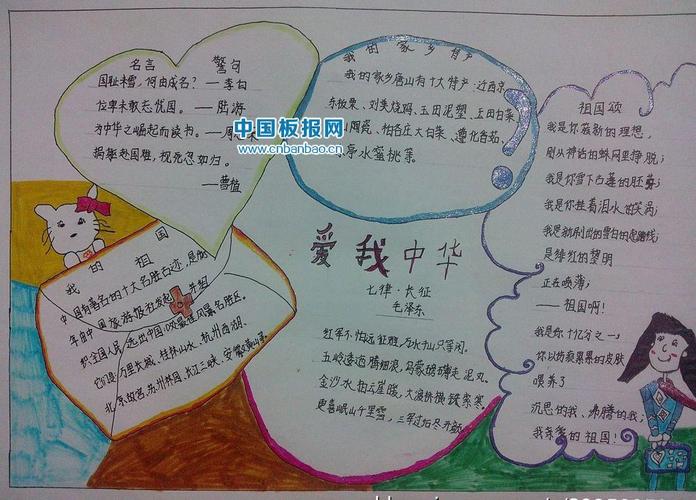 名言 警句
国耻未雪,何由成名?—李白
位卑未敢忘忧国。—陆游
为中华之崛起而读书。—周
捐躯赴国难,视死忽如归。
—曹植
中国板报网
www.cnbanbao.cn
我的家乡特产
我的家乡唐山有十大特产:迁西京
东板栗、刘美烧鸡、玉田泥塑、玉田白菜
山陶瓷、柏各庄大米、遵化香菇、
亭水蜜桃等
祖国颂
我是你簇新的理想,
刚从神话的蛛网里挣脱;
我是你雪下古莲的胚芽;
我是你挂着泪水的笑涡;
我是新刷出的雪白的起跑线;
是绯红的黎明
正在喷薄;
——祖国啊!
我是你十亿分之一;
你以伤痕累累的
喂养了
沉思的我、沸腾的我;
我亲爱的祖国!
我的祖国
中国有著名的十大名胜古迹,是
年由中国旅游报社发起并组
织全国人民选出中国10处最佳风景名胜区。
它们是:万里长城、桂林山水、杭州西湖、
北京故宫、苏州园林、长江三峡、安徽黄山
爱我中华
七律·长征
毛泽东
红军不怕远征难,万水千山只等闲。
五岭逶迤腾细浪,乌蒙磅礴走泥丸。
金沙水拍云崖暖,大渡桥横铁索寒。
更喜岷山千里雪,三军过后尽开颜